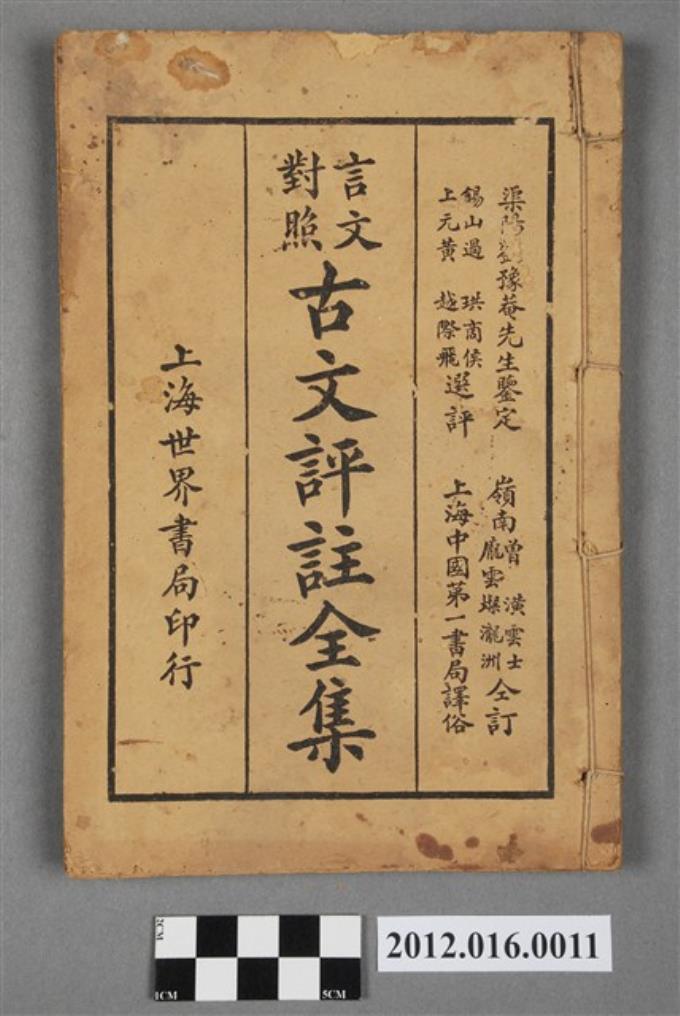 渠陽劉豫菴先生鑒定
錫山過　珙商侯
上元黃　越際飛
選評
嶺南
曾　潢雲士
龐雲燦瀧洲
仝訂
上海中國第一書局譯俗
言文
對照
古文評註全集
上海世界書局印行
2CM
1CM
5CM
2012.016.0011